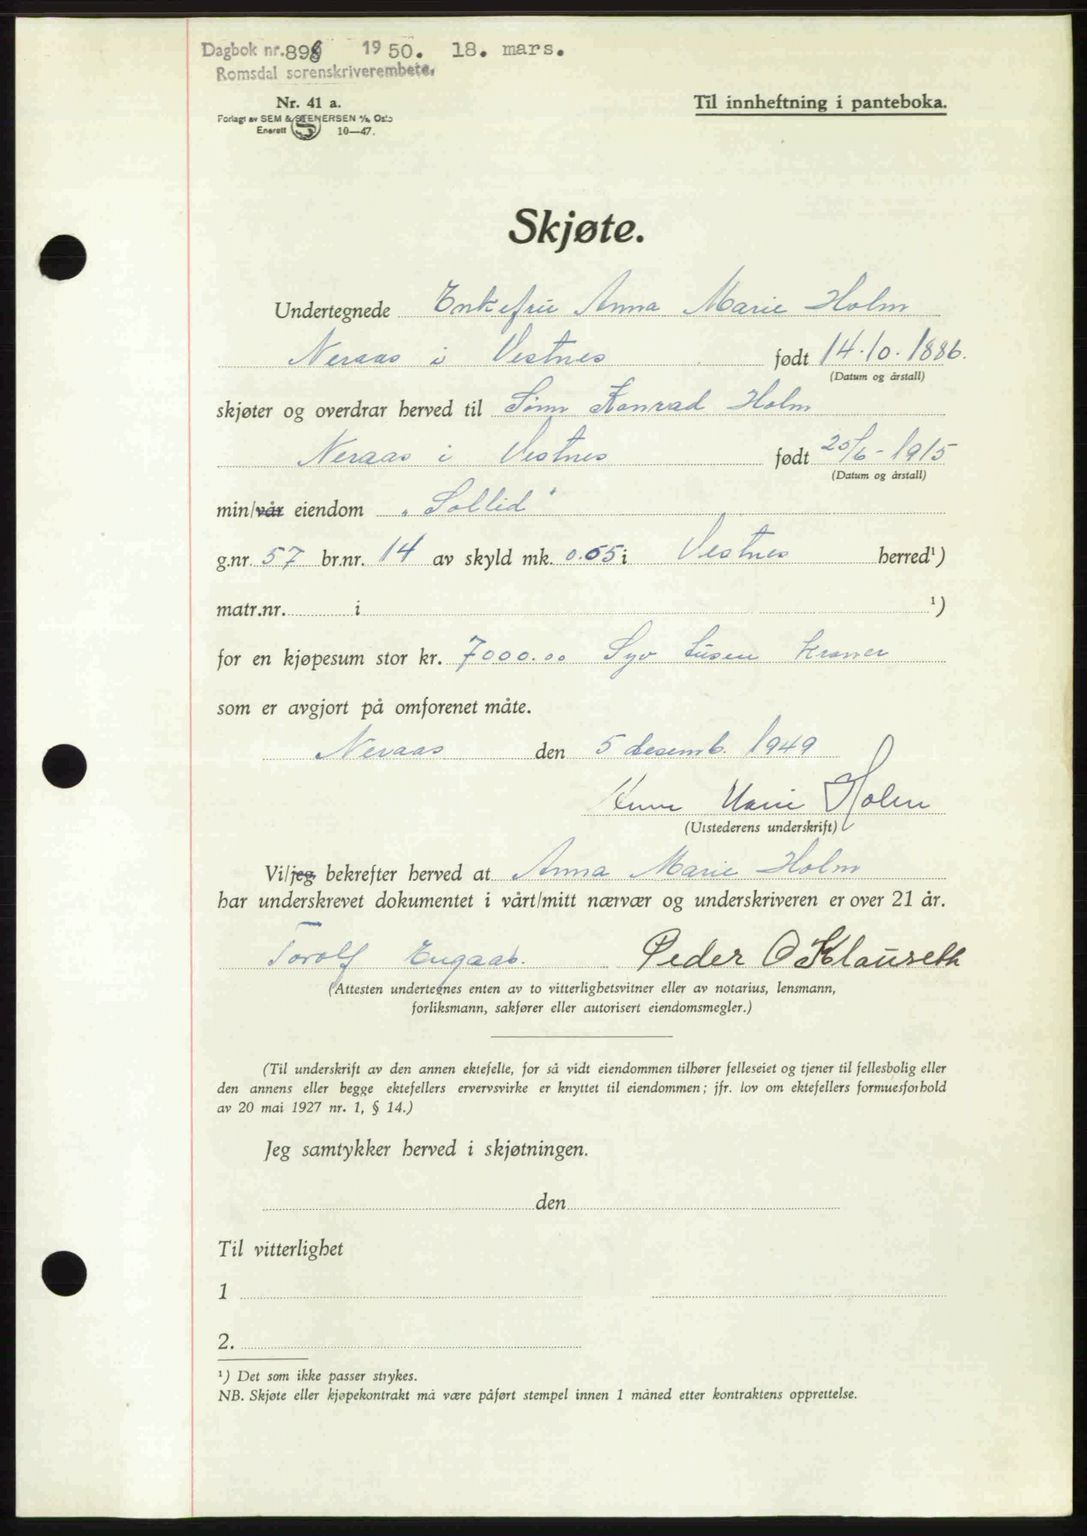 Dagbok nr. 898 1950. 18. mars.
Romsdal sorenskriverembete.
Nr. 41 a.
Til innheftning i panteboka.
Forlagt av SEM & STENERSEN A/S, Oslo
Enerett 10—47.
Skjøte.
Undertegnede Enkefru Anna Marie Holm
Neraas i Vestnes født 14.10.1886.
(Datum og årstall)
skjøter og overdrar herved til Sönn Konrad Holm
Neraas i Vestnes født 25/6-1915
(Datum og årstall)
min/vår eiendom "Sollid"
g.nr. 57 br.nr. 14 av skyld mk. 0.65 i Vestnes herred¹)
matr.nr. i ¹)
for en kjøpesum stor kr. 7000.00 Syv tusen kroner
som er avgjort på omforenet måte.
Neraas den 5 desemb. 1949
Anna Marie Holm
(Utstederens underskrift)
Vi/jeg bekrefter herved at Anna Marie Holm
har underskrevet dokumentet i vårt/mitt nærvær og underskriveren er over 21 år.
Torolf Engaas. Peder O Klauseth
(Attesten undertegnes enten av to vitterlighetsvitner eller av notarius, lensmann,
forliksmann, sakfører eller autorisert eiendomsmegler.)
(Til underskrift av den annen ektefelle, for så vidt eiendommen tilhører felleseiet og tjener til fellesbolig eller
den annens eller begge ektefellers ervervsvirke er knyttet til eiendommen; jfr. lov om ektefellers formuesforhold
av 20 mai 1927 nr. 1, § 14.)
Jeg samtykker herved i skjøtningen.
den
Til vitterlighet
1
2.
¹) Det som ikke passer strykes.
NB. Skjøte eller kjøpekontrakt må være påført stempel innen 1 måned etter kontraktens opprettelse.